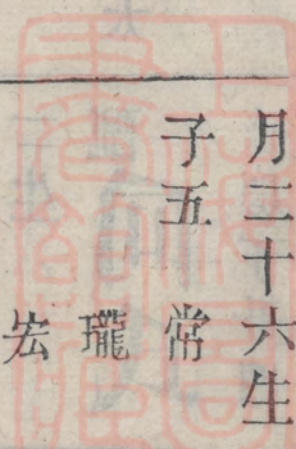 月二十六生
子五　常
瓏
宏